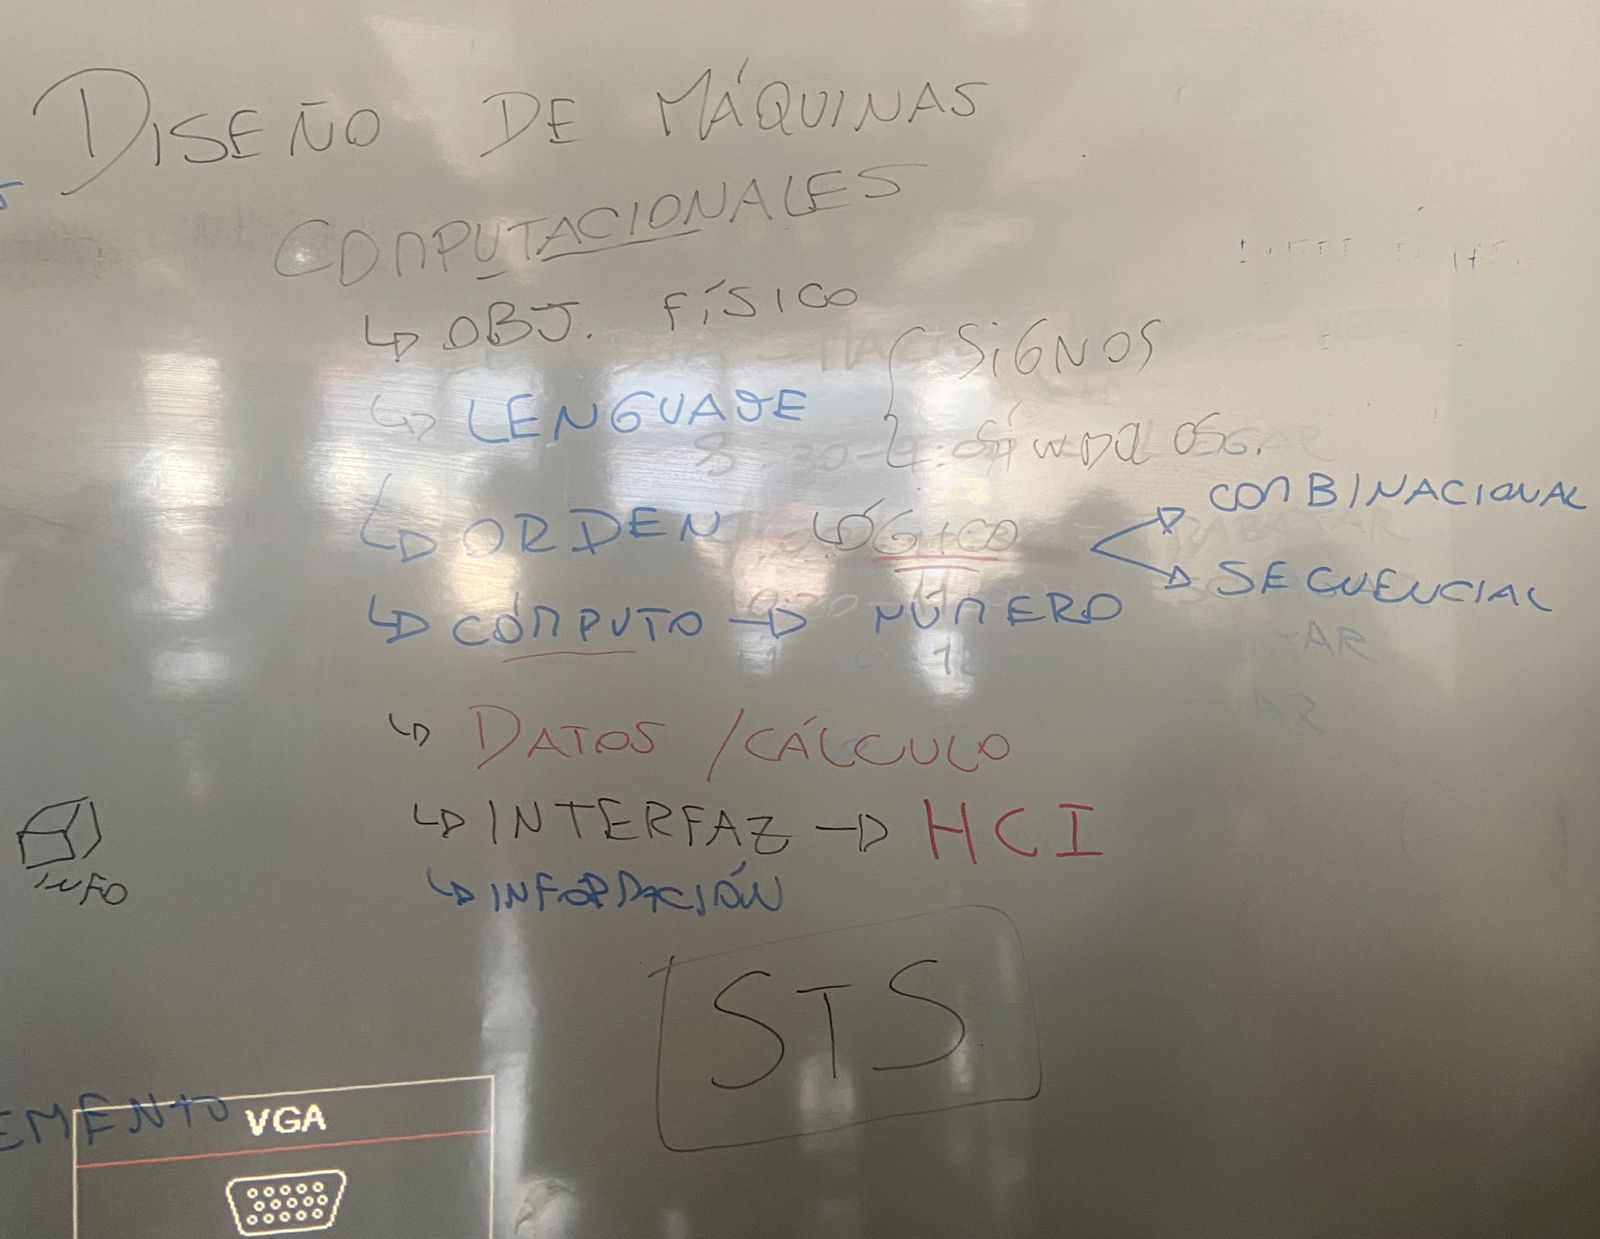 DISEÑO DE MÁQUINAS
COMPUTACIONALES
↳ OBJ. FÍSICO
↳ LENGUAJE { SIGNOS
SÍMBOLOS.
↳ ORDEN LÓGICO → COMBINACIONAL
→ SECUENCIAL
↳ CÓMPUTO → NÚMERO
↳ DATOS / CÁLCULO
↳ INTERFAZ → HCI
↳ INFORMACIÓN
INFO
STS
EMENTO
VGA